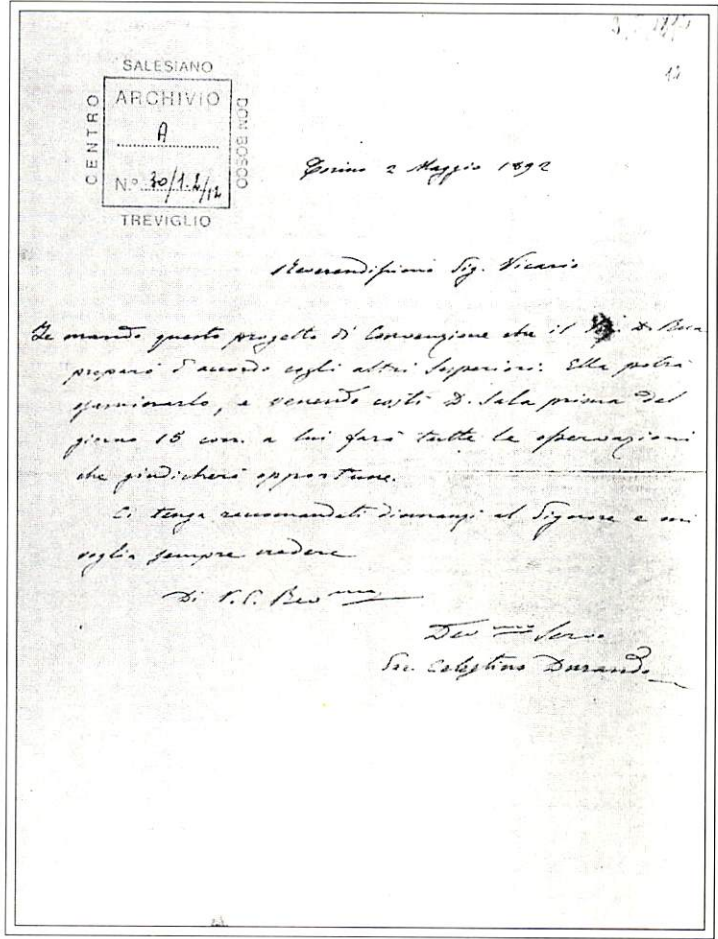 12
SALESIANO
CENTRO
ARCHIVIO
A
N° 30/1.2/12
DON BOSCO
TREVIGLIO
Torino 2 Maggio 1892
Reverendissimo Sig. Vicario
Le mando questo progetto di Convenzione che il D.
preparò d'accordo cogli altri Superiori. Ella potrà
esaminarlo, e venendo costì D. Sala prima del
giorno 15 corr. a lui farà tutte le osservazioni
che giudicherà opportune.
Ci tenga raccomandati dinnanzi al Signore e mi
voglia sempre credere
Di V.S. Rev ma
Dev mo Servo
Sac. Celestino Durando